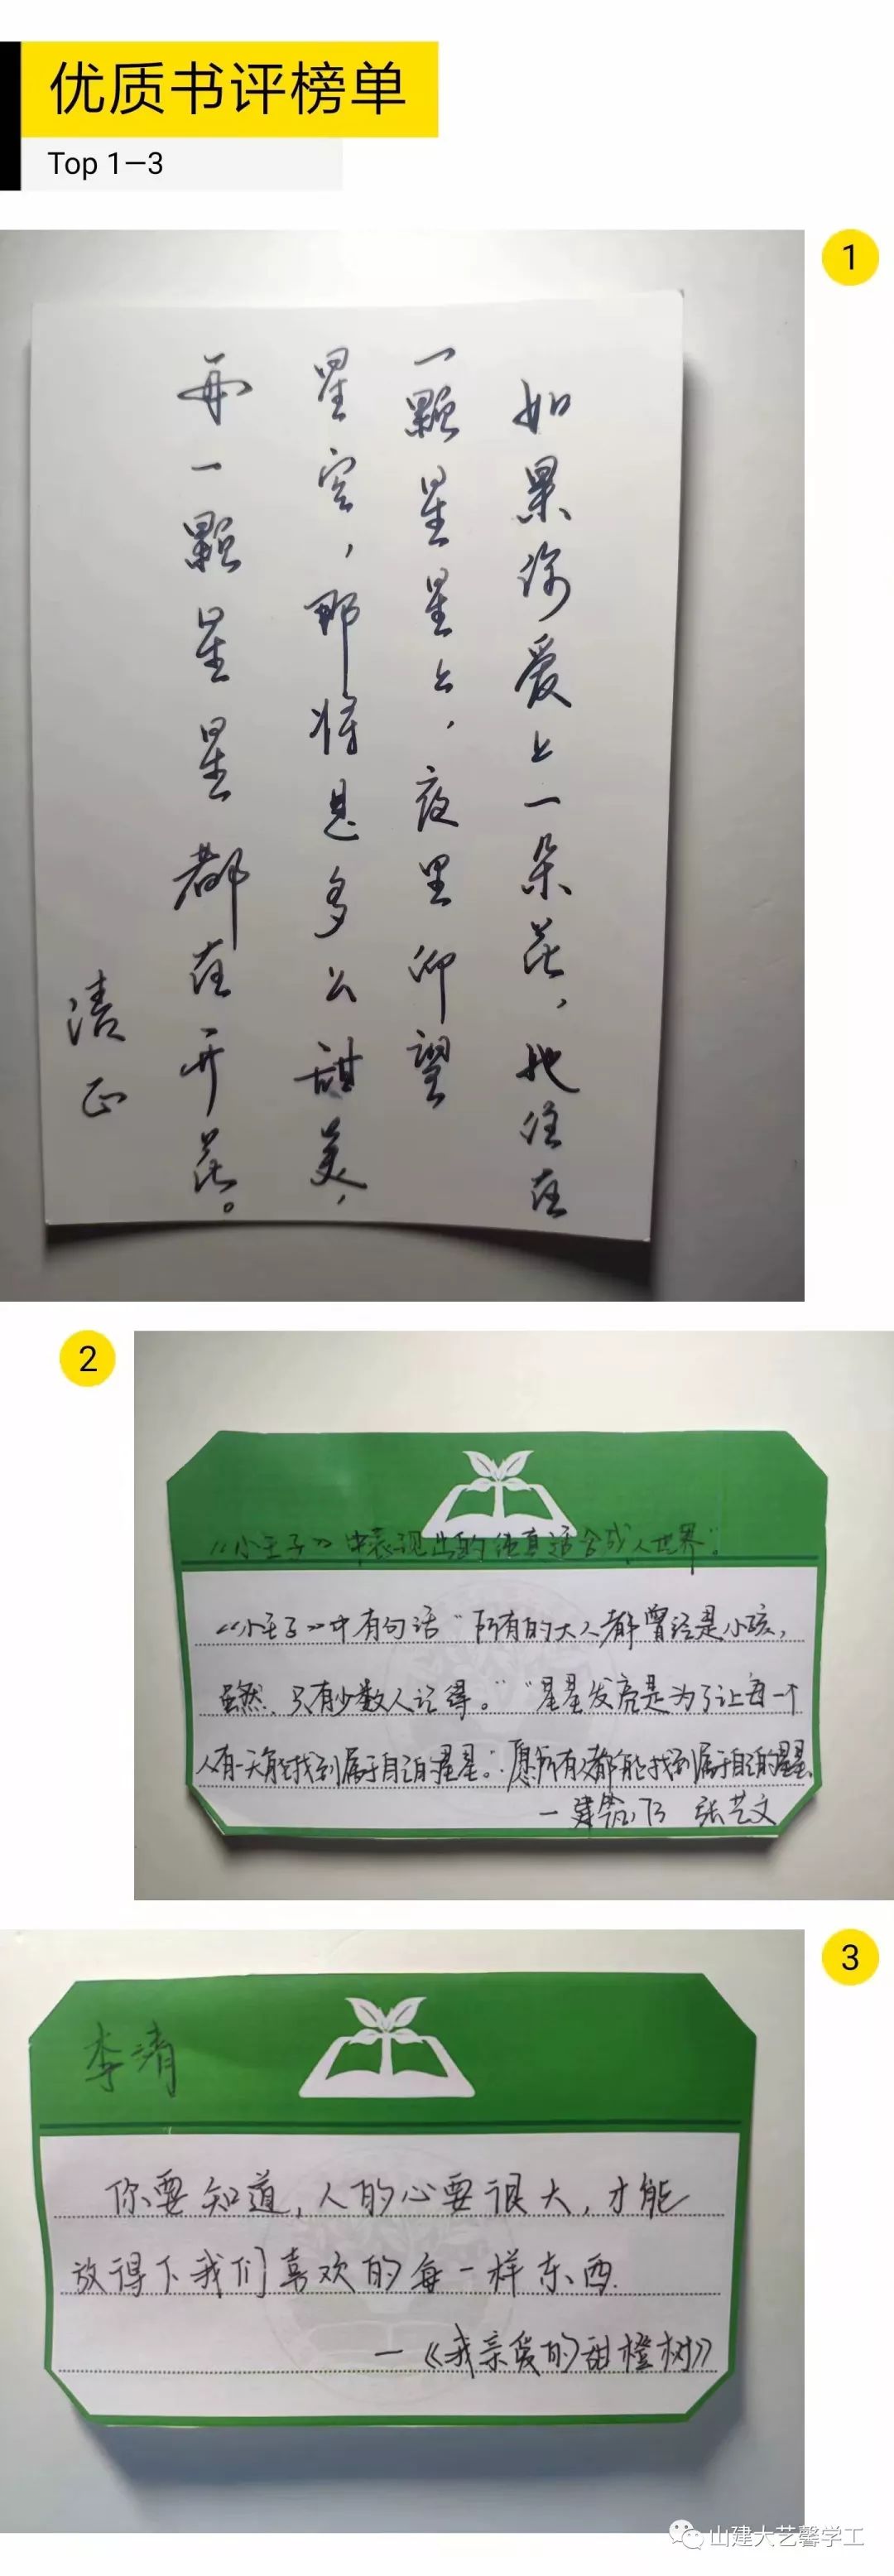 优质书评榜单
Top 1—3
1
如果你爱上一朵花，她住在
一颗星星上，夜里仰望
星空，那将是多么甜美，
每一颗星星都在开花。
清正
2
《小王子》中表现出的纯真适合成人世界。
《小王子》中有句话“所有的大人都曾经是小孩，
虽然，只有少数人记得。”“星星发亮是为了让每一个
人有一天能找到属于自己的星星。”愿所有人都能找到属于自己的星星。
—建筑 张艺文
3
李清
你要知道，人的心要很大，才能
放得下我们喜欢的每一样东西.
—《我亲爱的甜橙树》
山建大艺馨学工